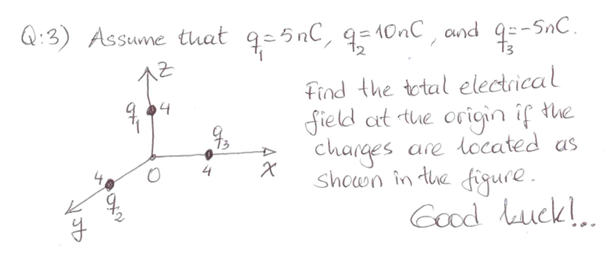 Q:3) Assume that q₁=5nC, q₂=10nC, and q₃=-5nC.
Find the total electrical
field at the origin if the
charges are located as
shown in the figure.
Good Luck!...
Z
q₁ 4
q₃
4 O 4 X
q₂
y